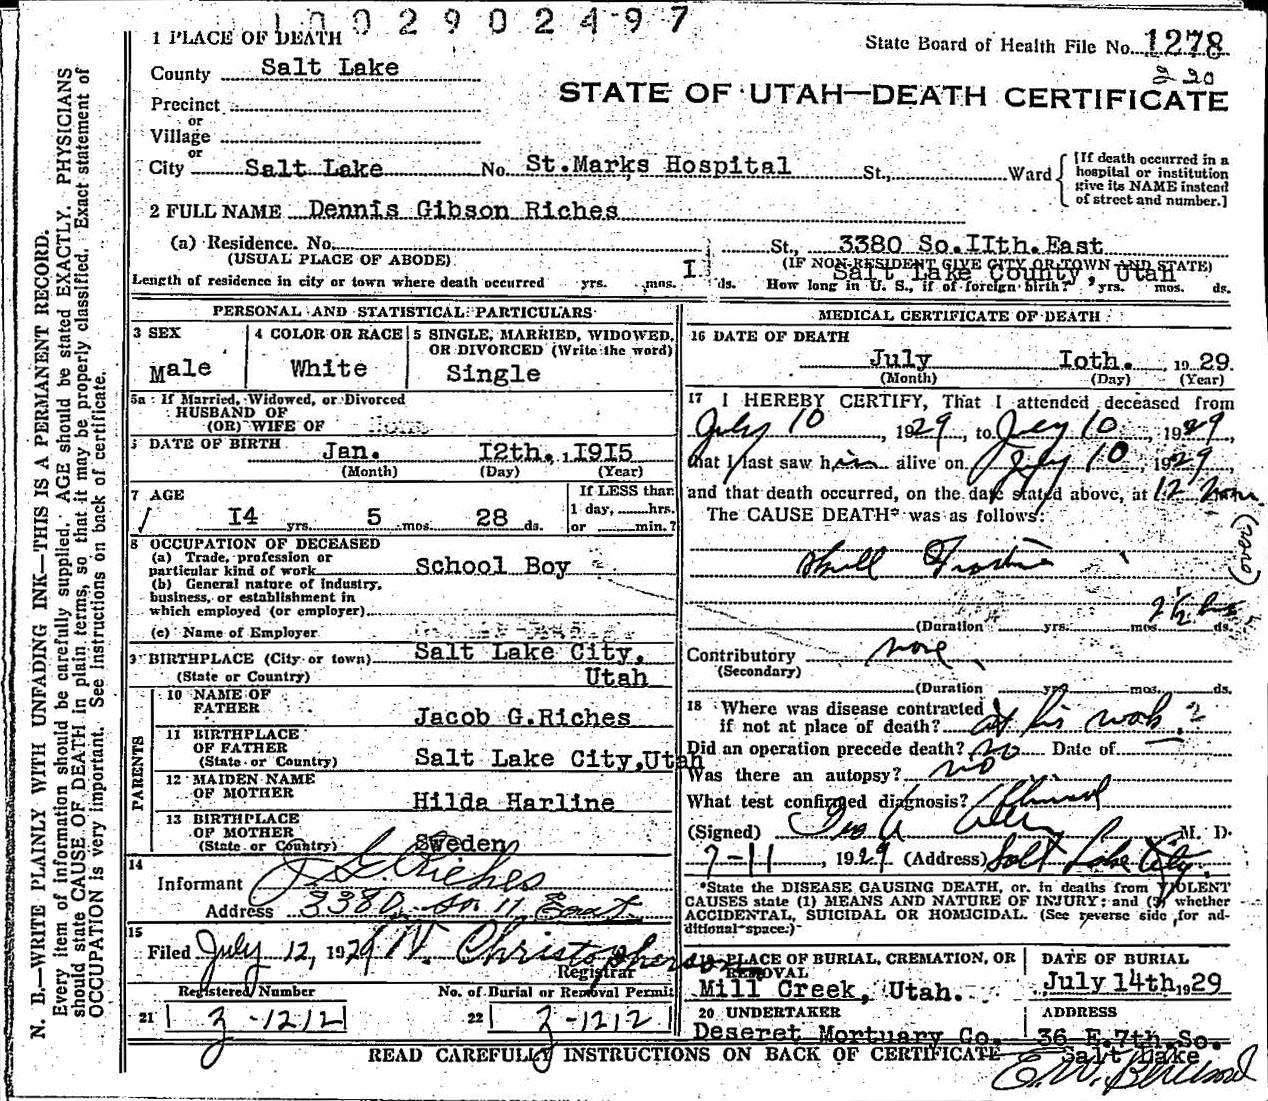 1 0 0 2 9 0 2 4 9 7
1 PLACE OF DEATH
State Board of Health File No. 1278
County Salt Lake
STATE OF UTAH—DEATH CERTIFICATE
Precinct
or
Village
or
City Salt Lake No. St.Marks Hospital St., Ward
[If death occurred in a
hospital or institution
give its NAME instead
of street and number.]
2 FULL NAME Dennis Gibson Riches
(a) Residence. No. St., 3380 So.IIth.East
(USUAL PLACE OF ABODE) (IF NON-RESIDENT GIVE CITY OR TOWN AND STATE)
Salt Lake County, Utah
Length of residence in city or town where death occurred yrs. mos. I ds. How long in U. S., if of foreign birth? yrs. mos. ds.
PERSONAL AND STATISTICAL PARTICULARS
3 SEX
Male
4 COLOR OR RACE
White
5 SINGLE, MARRIED, WIDOWED,
OR DIVORCED (Write the word)
Single
5a If Married, Widowed, or Divorced
HUSBAND OF
(OR) WIFE OF
DATE OF BIRTH Jan. I2th., I9I5
(Month) (Day) (Year)
7 AGE
I4 yrs. 5 mos. 28 ds.
If LESS than
1 day, hrs.
or min.?
8 OCCUPATION OF DECEASED
(a) Trade, profession or
particular kind of work School Boy
(b) General nature of industry,
business, or establishment in
which employed (or employer)
(c) Name of Employer
9 BIRTHPLACE (City or town) Salt Lake City,
(State or Country) Utah
PARENTS
10 NAME OF
FATHER Jacob G.Riches
11 BIRTHPLACE
OF FATHER
(State or Country) Salt Lake City,Utah
12 MAIDEN NAME
OF MOTHER Hilda Harline
13 BIRTHPLACE
OF MOTHER
(State or Country) Sweden
14
Informant J. G. Riches
Address 3380 So 11 East
15
Filed July 12, 1929 Christopherson
Registrar
Registered Number
21 3-1212
No. of Burial or Removal Permit
22 3-1212
MEDICAL CERTIFICATE OF DEATH
16 DATE OF DEATH
July Ioth. 1929.
(Month) (Day) (Year)
17 I HEREBY CERTIFY, That I attended deceased from
July 10, 1929, to July 10, 1929,
that I last saw him alive on July 10, 1929,
and that death occurred, on the date stated above, at 12 noon
(noon)
The CAUSE DEATH* was as follows:
Skull Fracture
2½ hrs
(Duration yrs. mos. ds.
Contributory none
(Secondary)
(Duration yrs. mos. ds.
18 Where was disease contracted
if not at place of death? at his work ?
Did an operation precede death? no Date of
Was there an autopsy? no
What test confirmed diagnosis? Clinical
(Signed) Geo A Allen M. D.
7-11, 1929 (Address) Salt Lake City.
*State the DISEASE CAUSING DEATH, or, in deaths from VIOLENT
CAUSES state (1) MEANS AND NATURE OF INJURY; and (2) whether
ACCIDENTAL, SUICIDAL OR HOMICIDAL. (See reverse side for ad-
ditional space.)
19 PLACE OF BURIAL, CREMATION, OR
REMOVAL
Mill Creek, Utah.
DATE OF BURIAL
July 14th, 1929
20 UNDERTAKER
Deseret Mortuary Co.
ADDRESS
36 E.7th.So.
Salt Lake
READ CAREFULLY INSTRUCTIONS ON BACK OF CERTIFICATE
N. B.—WRITE PLAINLY WITH UNFADING INK—THIS IS A PERMANENT RECORD.
Every item of information should be carefully supplied. AGE should be stated EXACTLY. PHYSICIANS
should state CAUSE OF DEATH in plain terms, so that it may be properly classified. Exact statement of
OCCUPATION is very important. See instructions on back of certificate.